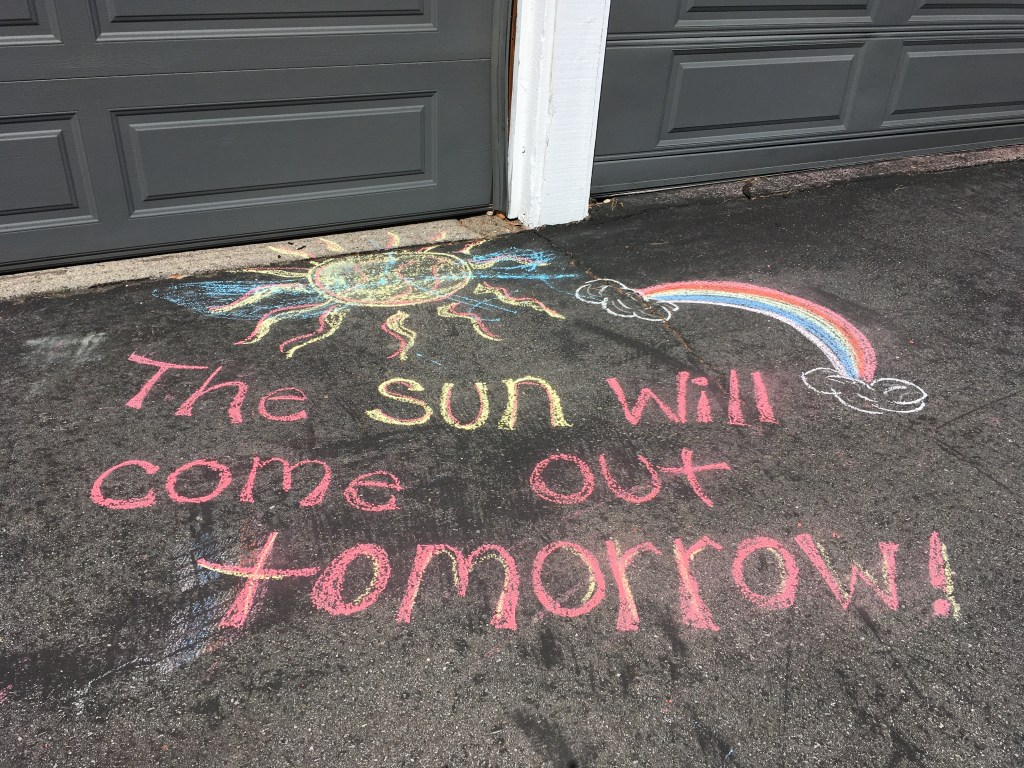 The sun will
come out
tomorrow!